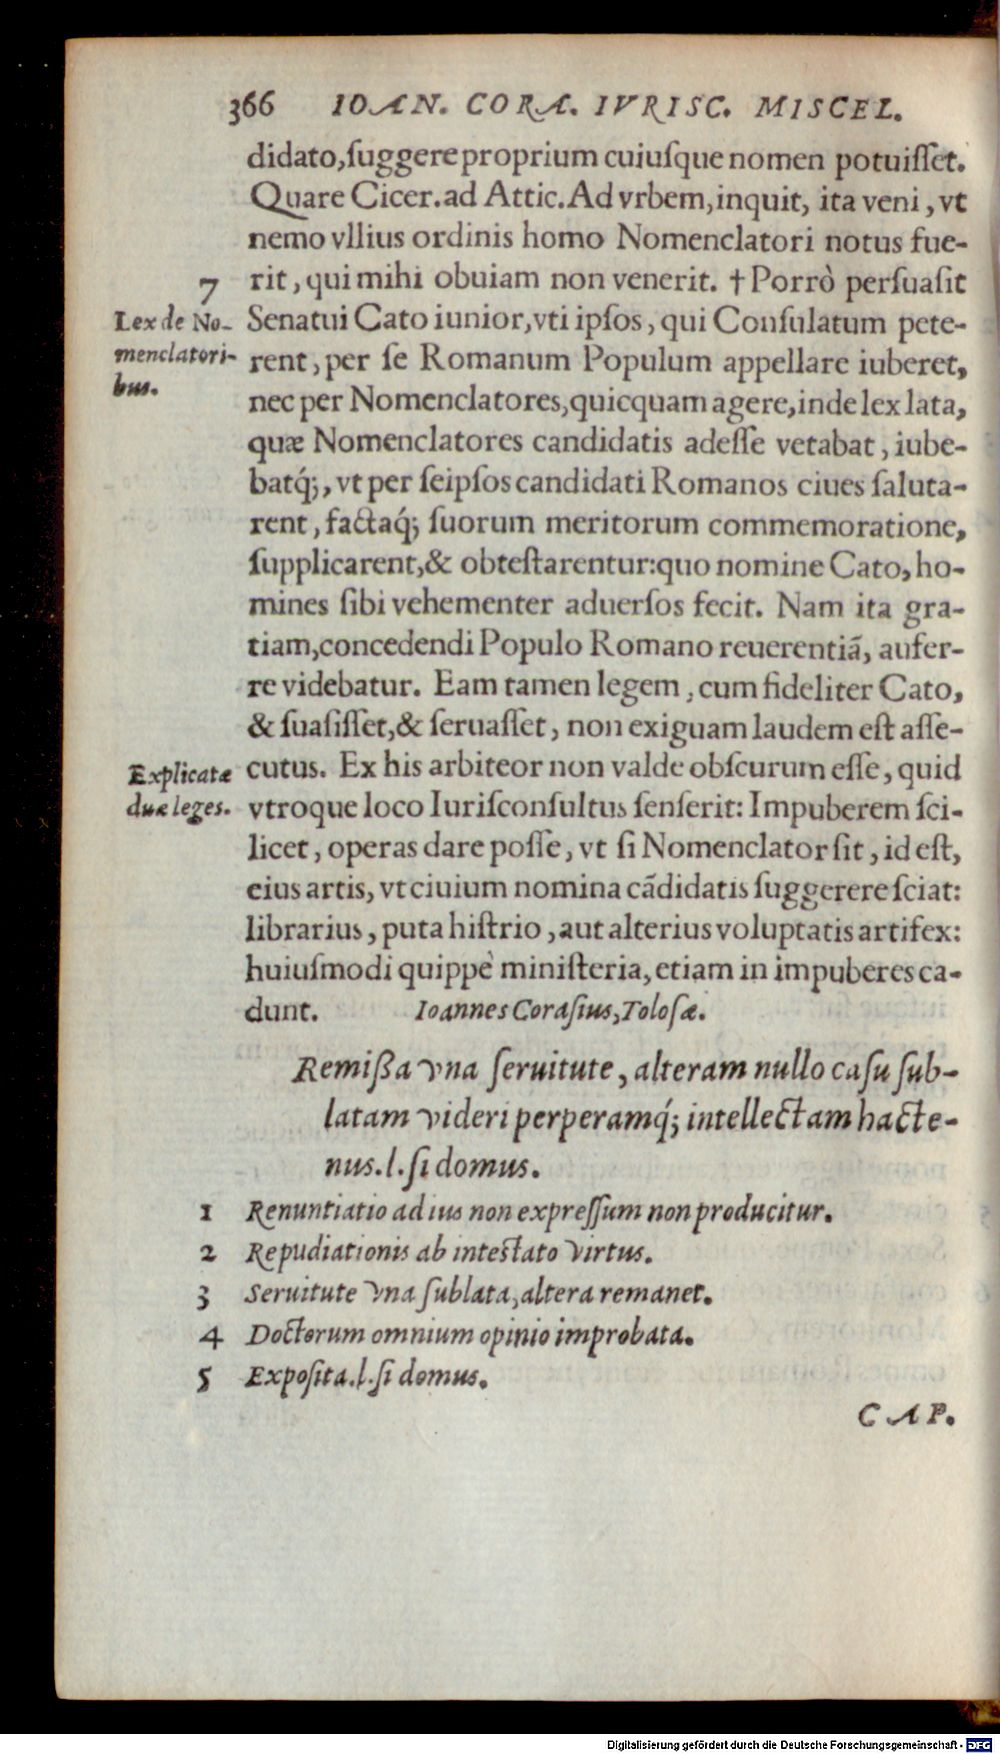 366 IOAN. CORA. IVRISC. MISCEL.
didato,ſuggere proprium cuiuſque nomen potuiſſet.
Quare Cicer. ad Attic. Ad vrbem, inquit, ita veni, vt
nemo vllius ordinis homo Nomenclatori notus fue-
rit, qui mihi obuiam non venerit. † Porrò perſuaſit
7
Senatui Cato iunior, vti ipſos, qui Conſulatum pete-
Lex de No-
rent, per ſe Romanum Populum appellare iuberet,
menclatori-
nec per Nomenclatores, quicquam agere, inde lex lata,
bus.
quæ Nomenclatores candidatis adeſſe vetabat, iube-
batq́;, vt per ſeipſos candidati Romanos ciues ſaluta-
rent, factaq́; ſuorum meritorum commemoratione,
ſupplicarent,& obteſtarentur:quo nomine Cato, ho-
mines ſibi vehementer aduerſos fecit. Nam ita gra-
tiam, concedendi Populo Romano reuerentiã, aufer-
re videbatur. Eam tamen legem, cum fideliter Cato,
& ſuaſiſſet,& ſeruaſſet, non exiguam laudem eſt aſſe-
cutus. Ex his arbiteor non valde obſcurum eſſe, quid
Explicatæ
vtroque loco Iuriſconſultus ſenſerit: Impuberem ſci-
duæ leges.
licet, operas dare poſſe, vt ſi Nomenclator ſit, id eſt,
eius artis, vt ciuium nomina cãdidatis ſuggerere ſciat:
librarius, puta hiſtrio, aut alterius voluptatis artifex:
huiuſmodi quippè miniſteria, etiam in impuberes ca-
dunt. Ioannes Coraſius, Toloſæ.
Remißa vna ſeruitute, alteram nullo caſu ſub-
latam videri perperamq́; intellectam hacte-
nus. l. ſi domus.
1 Renuntiatio ad ius non expreſſum non producitur.
2 Repudiationis ab inteſtato virtus.
3 Seruitute vna ſublata, altera remanet.
4 Doctorum omnium opinio improbata.
5 Expoſita. l. ſi domus.
CAP.
Digitalisierung gefördert durch die Deutsche Forschungsgemeinschaft - DFG